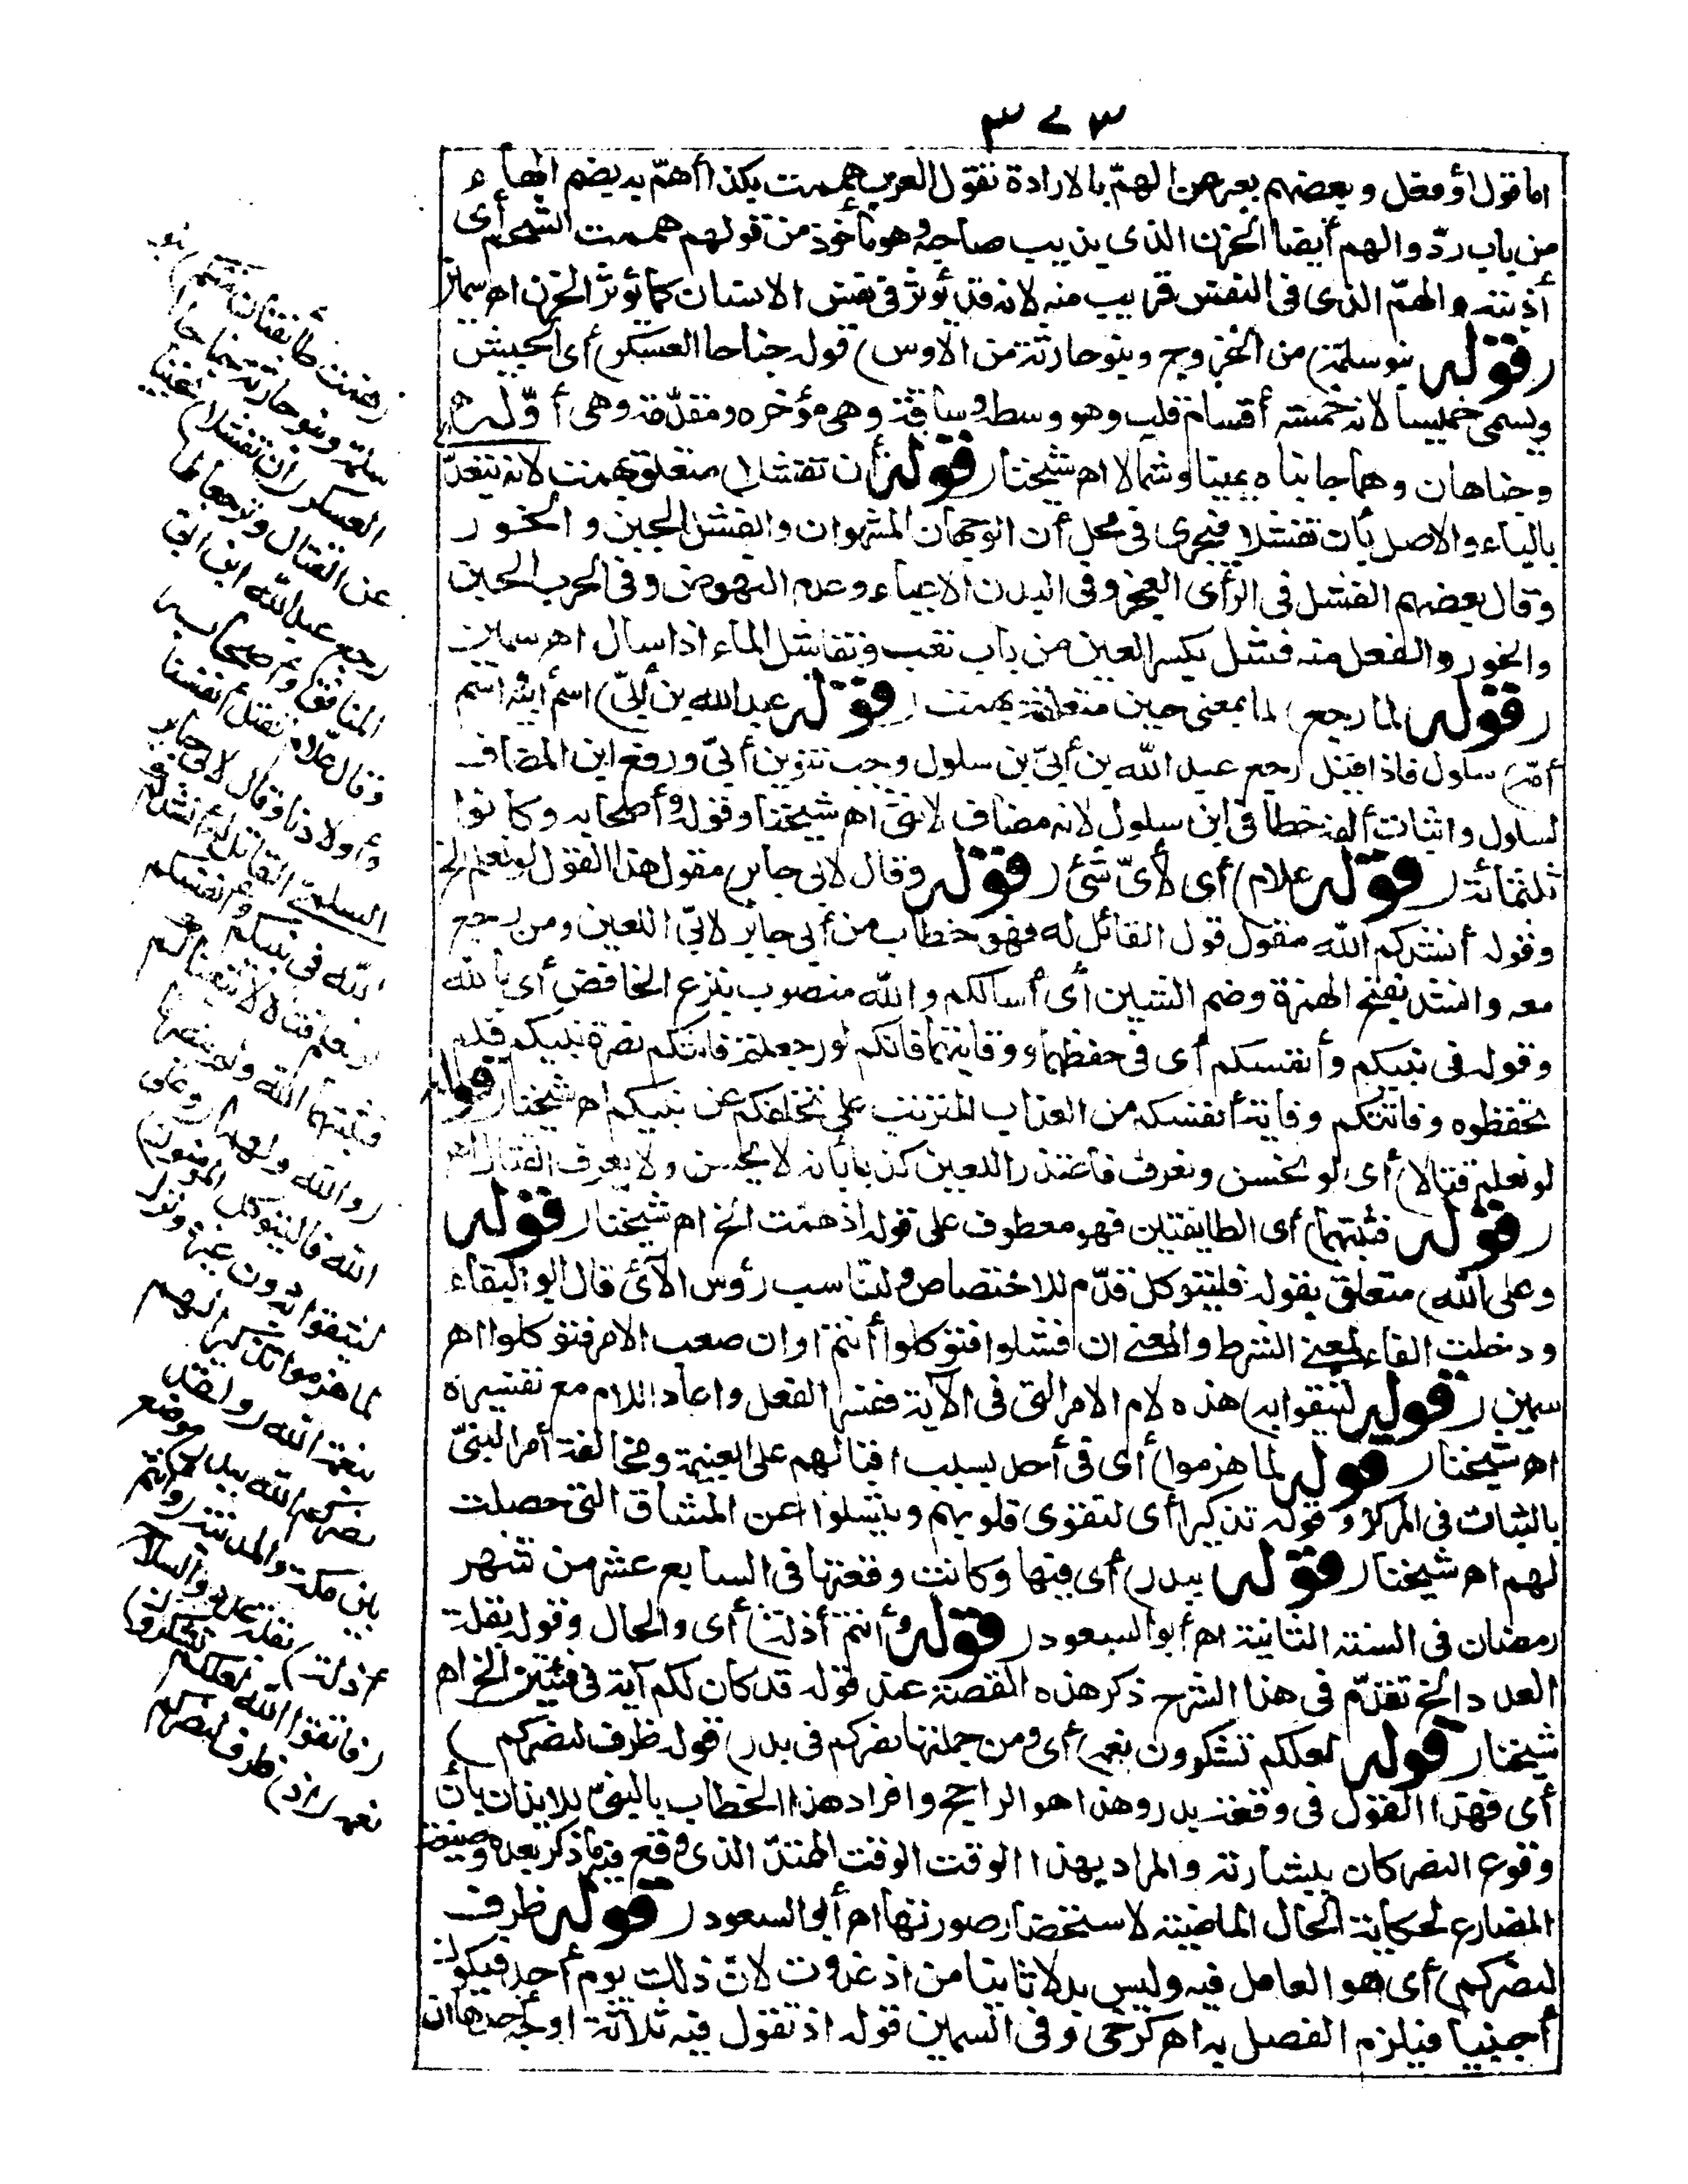 ٣٧٣
اما قول أو فعل وبعضهم يعبر عن الهمّ بالارادة تقول العرب هممت بكذا أهمّ به بضم الهاء
من باب ردّ والهم أيضا الحزن الذى يذيب صاحبه وهو مأخوذ من قولهم هممت الشحم أى
أذبته والهمّ الذى فى النفس قريب منه لانه قد يؤثر فى نفس الانسان كما يؤثر الحزن اه سمين
(قوله بنو سلمة) من الخزرج وبنو حارثة من الاوس (قوله جناحا العسكر) أى الجيش
ويسمى خميسا لانه خمسة أقسام قلب وهو وسطه وساقة وهى مؤخره ومقدّمة وهى أوّله
وجناحان وهما جانباه يمينا وشمالا اه شيخنا (قوله أن تفشلا) متعلق بهمت لانه يتعدّى
بالباء والاصل بأن تفشلا فيجرى فى محل أن الوجهان المشهوران والفشل الجبن والخور
وقال بعضهم الفشل فى الرأى العجز وفى البدن الاعياء وعدم النهوض وفى الحرب الجبن
والخور والفعل منه فشل بكسر العين من باب تعب وتفاشل الماء اذا سال اه سمين
(قوله لما رجع) لما بمعنى حين متعلقة بهمت (قوله عبد الله بن أبىّ) اسم أبيه اسم
أمّه سلول فاذا قيل رجع عبد الله بن أبىّ بن سلول وجب تنوين أبىّ ورفع ابن المضاف
لسلول واثبات ألفه خطا فى ابن سلول لانه مضاف لانثى اه شيخنا وقوله وأصحابه وكانوا
ثلثمائة (قوله علام) أى لأىّ شئ (قوله وقال لابى جابر) مقول هذا القول لو نعلم الخ
وقوله أنشدكم الله مقول قول القائل له فهو خطاب من أبى جابر لابىّ اللعين ومن رجع
معه وانشد بفتح الهمزة وضم الشين أى أسألكم والله منصوب بنزع الخافض أى بالله
وقوله فى نبيكم وأنفسكم أى فى حفظهما ووقايتهما فانكم لو رجعتم فاتتكم نصرة نبيكم فلم
تحفظوه وفاتتكم وقاية أنفسكم من العذاب المترتب على تخلفكم عن نبيكم اه شيخنا (قوله
لو نعلم قتالا) أى لو نحسن ونعرف فاعتذر اللعين كذبا بأنه لا يحسن ولا يعرف القتال اه
(قوله فثبتهما) أى الطايفتين فهو معطوف على قوله اذ همت الخ اه شيخنا (قوله
وعلى الله) متعلق بقوله فليتوكل قدّم للاختصاص ولتناسب رؤس الآى قال أبو البقاء
ودخلت الفاء لمعنى الشرط والمعنى ان فشلوا فتوكلوا أنتم او ان صعب الامر فتوكلوا اه
سمين (قوله ليثقوا به) هذه لام الامر التى فى الآية ففسر الفعل واعاد اللام مع تفسيره
اه شيخنا (قوله لما هزموا) أى فى أحد بسبب اقبالهم على الغنيمة ومخالفة أمر النبىّ
بالثبات فى المركز وقوله تذكيرا أى لتقوى قلوبهم ويتسلوا عن المشاق التى حصلت
لهم اه شيخنا (قوله ببدر) أى فيها وكانت وقعتها فى السابع عشر من شهر
رمضان فى السنة الثانية اه أبو السعود (قوله وأنتم أذلة) أى والحال وقوله بقلة
العدد الخ تقدّم فى هذا الشرح ذكر هذه القصة عند قوله قد كان لكم آية فى فئتين الخ اه
شيخنا (قوله لعلكم تشكرون نعمه) أى ومن جملتها نصركم فى بدر (قوله ظرف لنصركم)
أى فهذا القول فى وقعة بدر وهذا هو الراجح وافراد هذا الخطاب بالنبىّ للايذان بأن
وقوع النصر كان ببشارته والمراد بهذا الوقت الوقت الممتدّ الذى وقع فيه ما ذكر بعده وصيغة
المضارع لحكاية الحال الماضية لاستحضار صورتها اه أبو السعود (قوله ظرف
لنصركم) أى هو العامل فيه وليس بدلا ثانيا من اذ غدوت لان ذلك يوم أحد فيكون
أجنبيا فيلزم الفصل به اه كرخى وفى السمين قوله اذ تقول فيه ثلاثة أوجه أحدها ان
(همت طائفتان منكم) بنو
سلمة وبنو حارثة جناحا
العسكر (أن تفشلا) تجبنا
عن القتال وترجعا لما
رجع عبد الله ابن أبى
المنافق وأصحابه
وقال علام نقتل أنفسنا
وأولادنا وقال لابى جابر
السلمىّ القائل له أنشدكم
الله فى نبيكم وأنفسكم
لو نعلم قتالا لاتبعناكم
فثبتهما الله ولم ينصرفا
(والله وليهما) (وعلى
الله فاليتوكل المؤمنون)
ليثقوا به دون غيره ونزل
لما هزموا تذكيرا لهم
بنعمة الله (ولقد
نصركم الله ببدر) موضع
بين مكة والمدينة (وأنتم
أذلة) بقلة عدد والسلاح
(فاتقوا الله لعلكم تشكرون)
نعمه (اذ) ظرف لنصركم